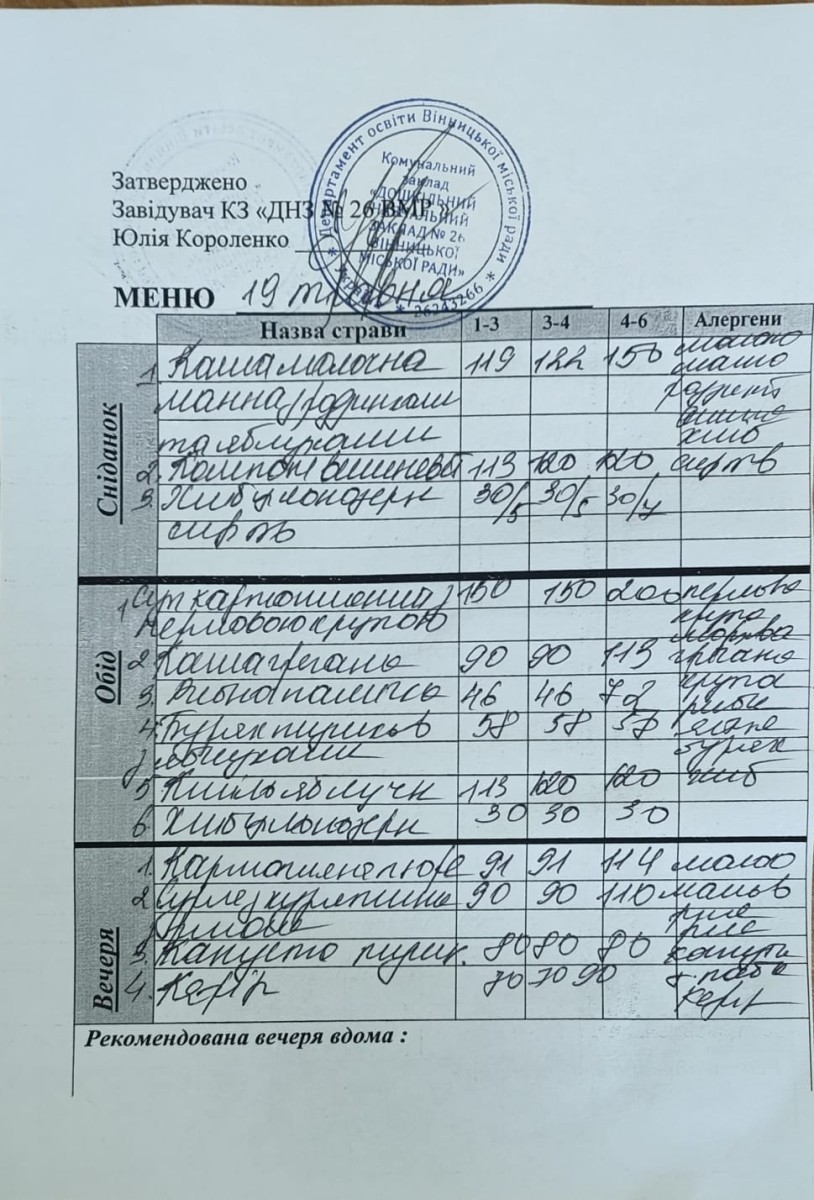 Затверджено
Завідувач КЗ «ДНЗ № 26 ВМР»
Юлія Короленко
Департамент освіти Вінницької міської ради * 26243266 *
Комунальний
заклад
«ДОШКІЛЬНИЙ
НАВЧАЛЬНИЙ
ЗАКЛАД № 26
ВІННИЦЬКОЇ
МІСЬКОЇ РАДИ»
МЕНЮ 19
Назва страви 1-3 3-4 4-6 Алергени
Сніданок
1. Каша молочна 119 122 150 молоко
манна з родзинками масло
та яблуками хліб
2. Компот вишневий 113 120 120
3. Хліб цільнозерн 30/5 30/5 30/7
сир тв
Обід
1 Суп картопляний з 150 150 200 перлова
перловою крупою крупа
морква
2 Каша гречана 90 90 113 гречана
крупа
3. Рибна паличка 46 46 72 риба
4. Буряк тушков 58 58 58
з яблуками буряк
5 Кисіль яблучн 113 120 120 хліб
6 Хліб цільнозерн 30 30 30
Вечеря
1. Картопляне пюре 91 91 114 молоко
2. 90 90 110
рисом рис
3. Капуста тушк. 80 80 80 капуста
4. Кефір 70 70 90
кефір
Рекомендована вечеря вдома :